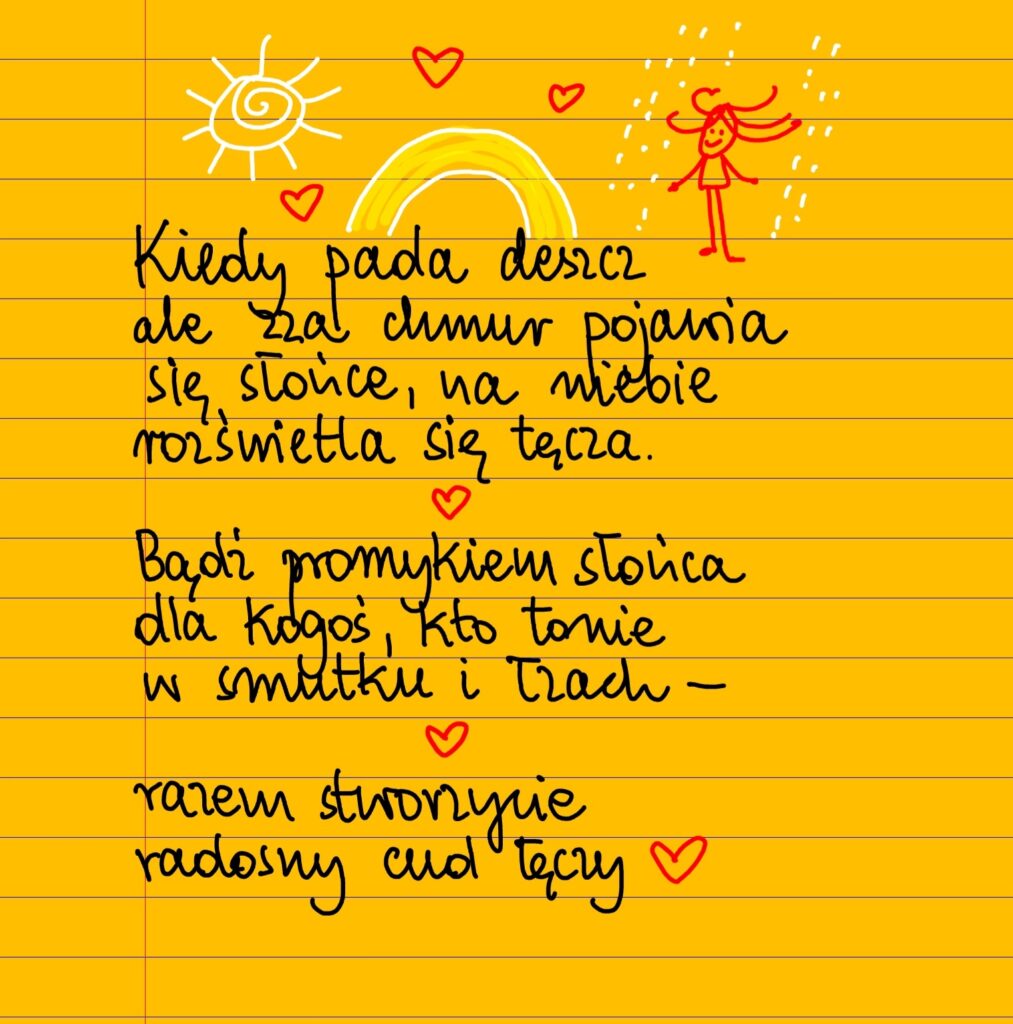 Kiedy pada deszcz
ale zza chmur pojawia
się słońce, na niebie
rozświetla się tęcza.
Bądź promykiem słońca
dla kogoś, kto tonie
w smutku i łzach –
razem stworzycie
radosny cud tęczy